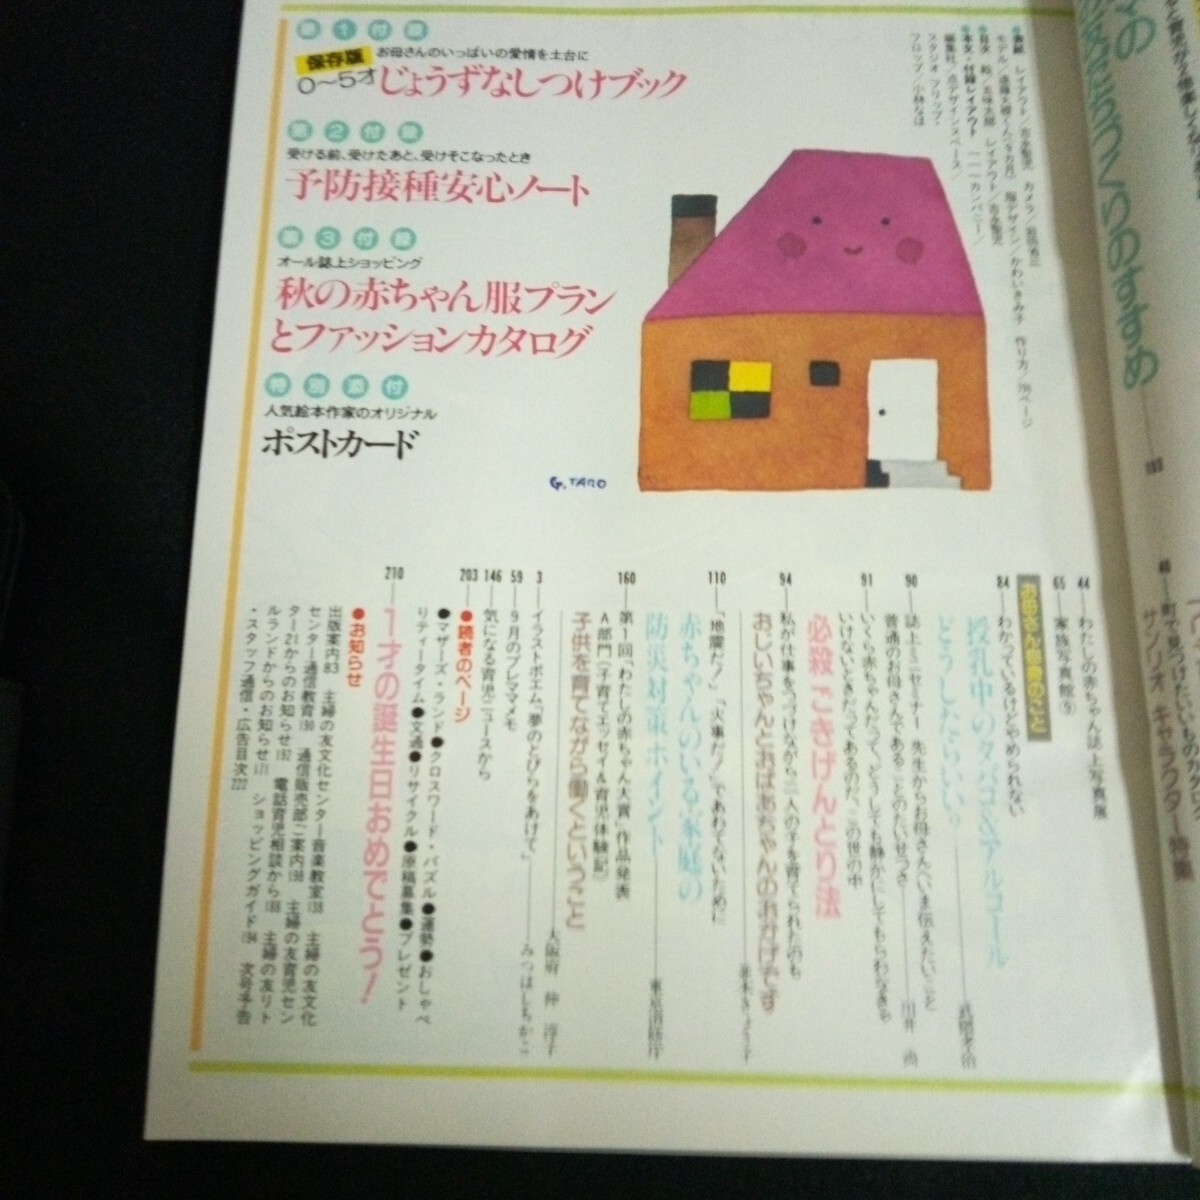 第1付録
保存版
お母さんのいっぱいの愛情を土台に
0〜5才じょうずなしつけブック
第2付録
受ける前、受けたあと、受けそこなったとき
予防接種安心ノート
第3付録
オール誌上ショッピング
秋の赤ちゃん服プラン
とファッションカタログ
特別添付
人気絵本作家のオリジナル
ポストカード
G.TARO
のすすめ
44 わたしの赤ちゃん誌上写真展
65 家族写真館⑤
お母さん自身のこと
84 わかっているけどやめられない
授乳中のタバコ&アルコール
どうしたらいい?
90 誌上ミニセミナー 先生からお母さんへいま伝えたいこと
普通のお母さんであることのたいせつさ
91 いくら赤ちゃんだって、どうしても静かにしてもらわなきゃ
いけないときだってあるのだ、この世の中
必殺 ごきげんとり法
94 私が仕事をつづけながら二人の子を育てられたのも
おじいちゃんとおばあちゃんのおかげです
110 「地震だ!」「火事だ!」であわてないために
赤ちゃんのいる家庭の
防災対策ポイント
東京消防庁
160 第1回「わたしの赤ちゃん大賞」作品発表
A部門(子育てエッセイ&育児体験記)
子供を育てながら働くということ
大阪府 仲 淳子
3 イラストポエム「夢のとびらをあけて」
みつはしちかこ
59 9月のプレママメモ
146 気になる育児ニュースから
203 ●読者のページ
●マザーズ・ランド●クロスワード・パズル●運勢●おしゃべ
りティータイム●文通●リサイクル●原稿募集●プレゼント
210 1才の誕生日おめでとう!
●お知らせ
出版案内83 主婦の友文化センター音楽教室138 主婦の友文化
センター通信教育190 通信販売部ご案内198 主婦の友育児セン
ター21からのお知らせ192 電話育児相談から188 主婦の友リト
ルランドからのお知らせ171 ショッピングガイド194 次号予告
・スタッフ通信・広告目次222